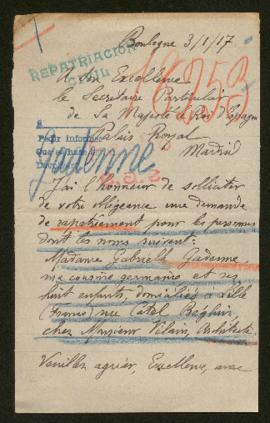 Boulogne 3/1/17
REPATRIACION
CIVIL
A Son Excellence
le Secrétaire Particulier
de Sa Majesté le Roi d'Espagne
Palais Royal
Madrid
Gadenne
J'ai l'honneur de solliciter
de votre obligeance une demande
de rapatriement pour les personnes
dont les noms suivent:
Madame Gabrielle Gadenne,
ma cousine germaine et ses
huit enfants, domiciliés à Lille
(France) rue Catel Béghin,
chez Monsieur Vilain, Architecte.
Veuillez agréer, Excellence, avec